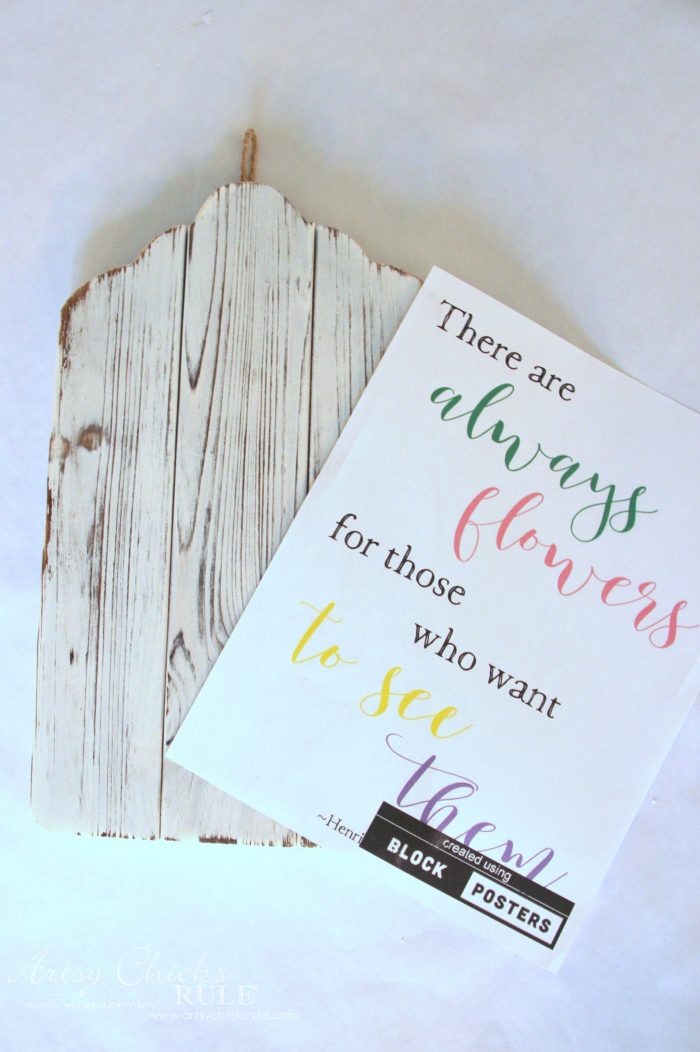 There are
always
flowers
for those
who want
to see
them
~Henri
created using
BLOCK POSTERS
Artsy Chicks
RULE®
www.artsychicksrule.com